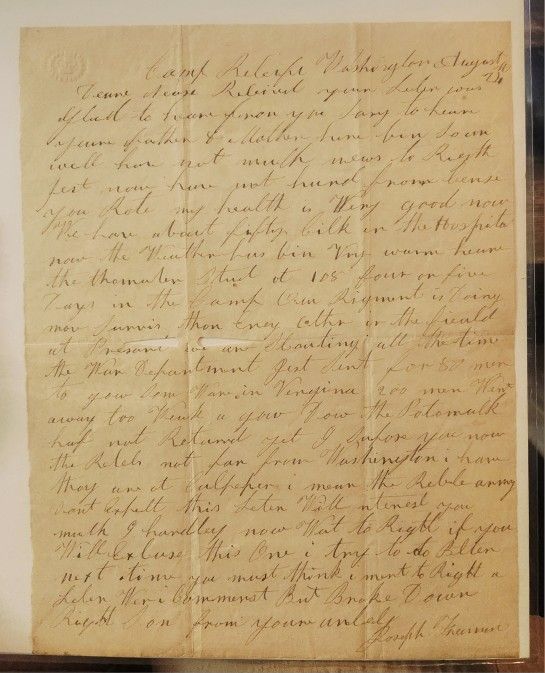 Camp Relief Washington August
Deare Niese Recived your Leter was
Glad to heare from you Sorry to heare
youre father & Mother have bin
well have not much news to Rigth
Jest now have not hurd from
you Rote my health is Very good now
We have about fifty Sick in the Hospital
now the Weather has bin Very warm heare
the Stud at 108 four or five
Days in the Camp Our Rigment is Doing
mor Survis than eney Other in the feald
at Present we are Scouting all the time
the War Department Jest Sent for 80 men
to gow Som Ware in Virginia 200 men Went
away too Weak a gow Down the Potomack
haf not Returnd yet I Supose you now
the Rebels not far from Washington i have
thay are at Culpeper i mean the Reble army
Dont Expect this Leter Will interest you
much I handley now Wat to Right if you
Will Excuse this One i try to do Better
next time you must think i ment to Right a
Leter Wen i Commenst But Broke Down
Right Son from youre uncle
Joseph